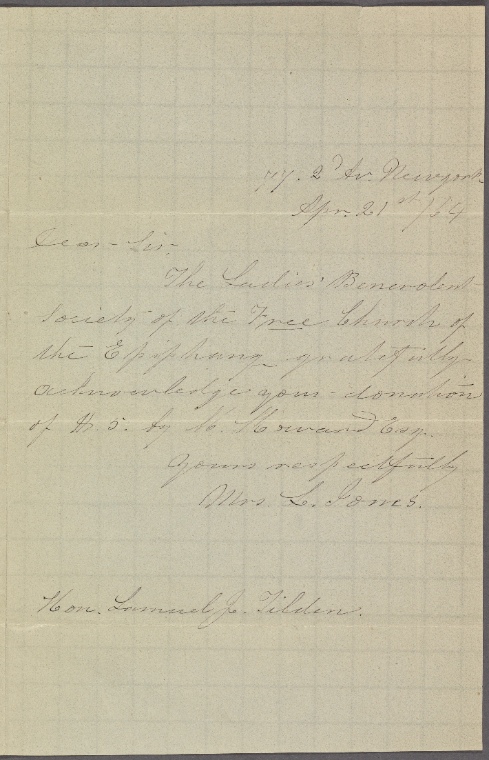 77. 2d Av. Newyork
Apr. 21st /64
Dear Sir.
The Ladies' Benevolent
Society of the Free Church of
the Epiphany gratefully
acknowledge your donation
of $ 5. by Howard Esq.
Yours respectfully
Mrs. L. Jones.
Hon. Samuel J. Tilden.